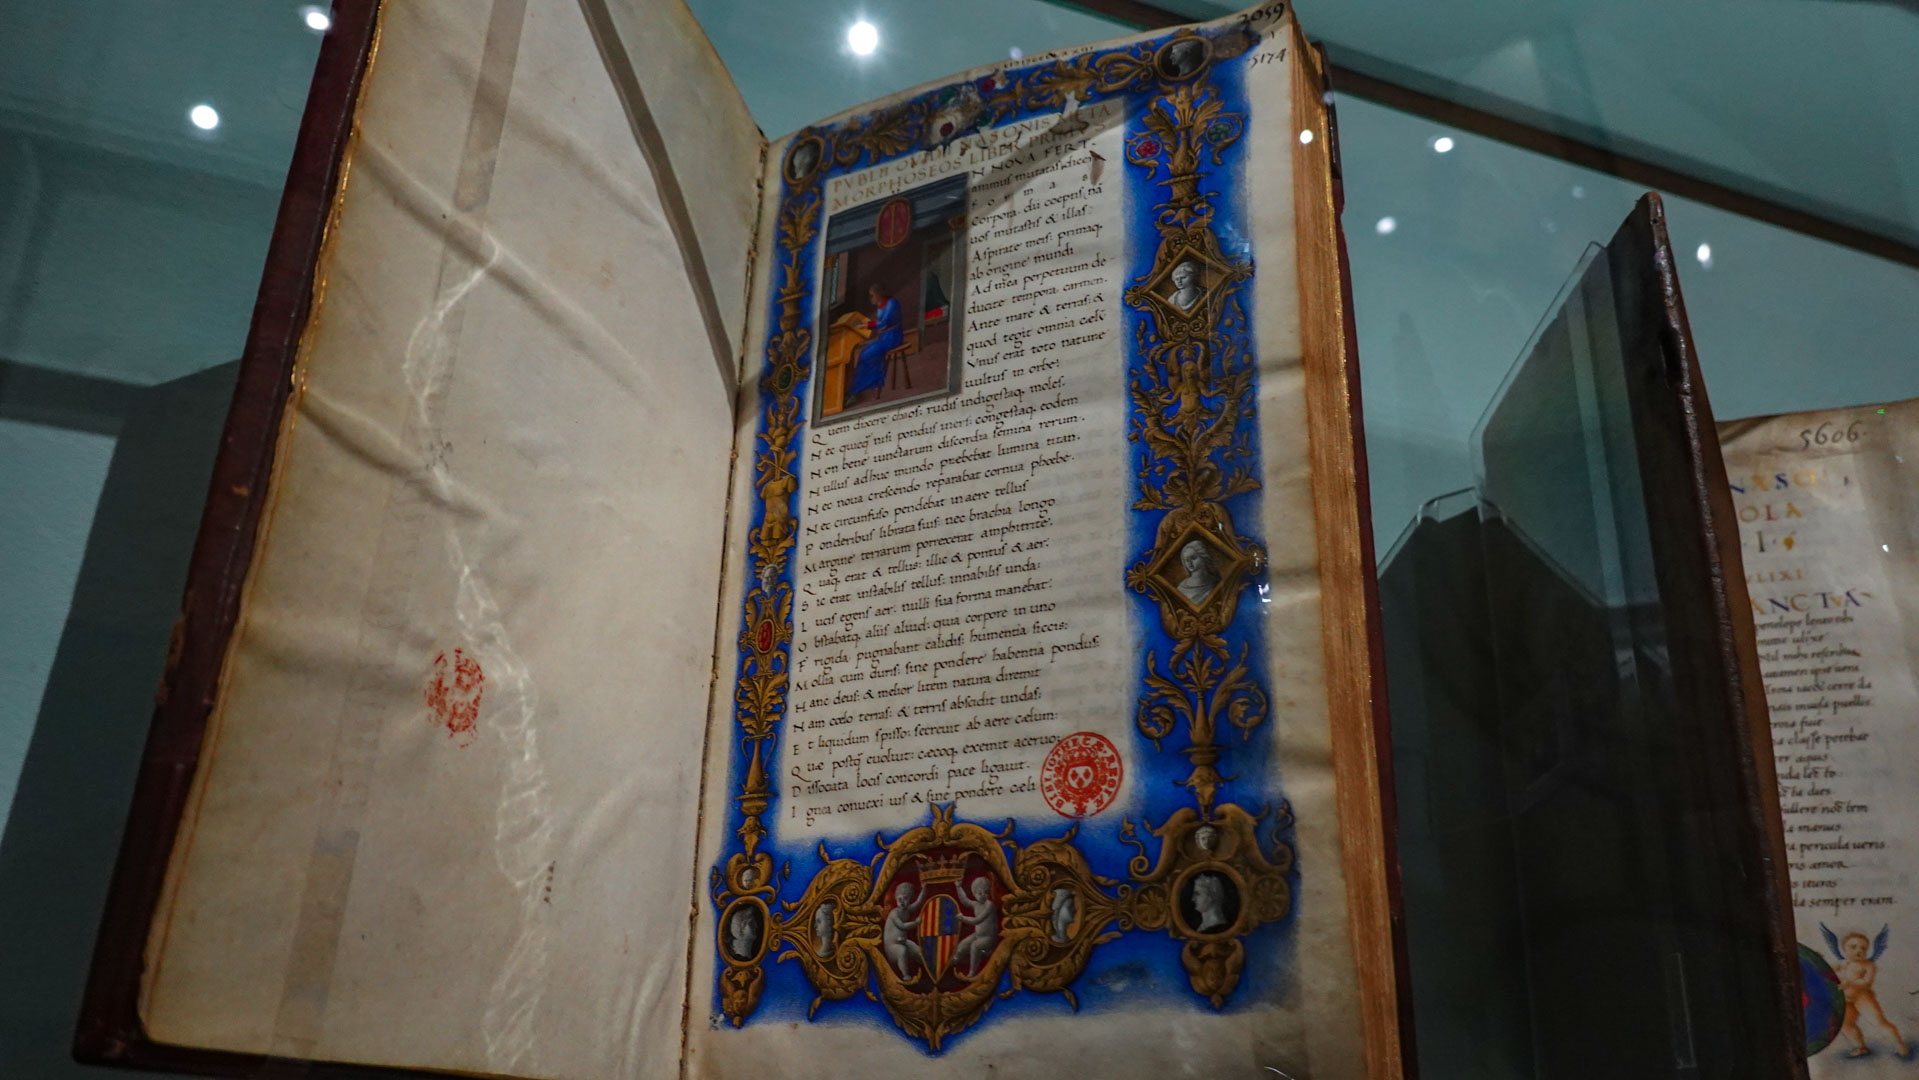 2059
5174
PVBLII OVIDII NASONIS META
MORPHOSEOS LIBER PRIMVS
N NOVA FERT
animus mutatas dicere
f o r m a s
Corpora. dii coeptis, nā
uos mutastis & illas:
Aspirate meis: primaq,
ab origine mundi
Ad mea perpetuum de
ducite tempora carmen.
Ante mare & terras: &
quod tegit omnia cælū
Vnus erat toto nature
uultus in orbe:
Quem dixere chaos: rudis indigestaq, moles.
Nec quicq̄ nisi pondus iners: congestaq, eodem
Non bene iunctarum discordia semina rerum.
Nullus adhuc mundo prebebat lumina titan.
Nec noua crescendo reparabat cornua phœbe.
Nec circunfuso pendebat in aere tellus
Ponderibus librata suis: nec brachia longo
Margine terrarum porrexerat amphitrite.
Quaq, erat & tellus: illic & pontus & aer:
Sic erat instabilis tellus: innabilis unda:
Lucis egens aer: nulli sua forma manebat:
Obstabatq, aliis aliud: quia corpore in uno
Frigida pugnabant calidis: humentia siccis:
Mollia cum duris: sine pondere habentia pondus:
Hanc deus: & melior litem natura diremit
Nam cœlo terras: & terris abscidit undas:
Et liquidum spisso: secreuit ab aere cælum:
Quæ postq̄ euoluit: cæcoq, exemit aceruo:
Dissociata locis concordi pace ligauit.
Ignea conuexi uis & sine pondere cæli
BIBLIOTHECÆ REGIÆ
5606
NASO
OLA
·I·
VLIXI
ANCTVA
penelope lento tibi
ulixe